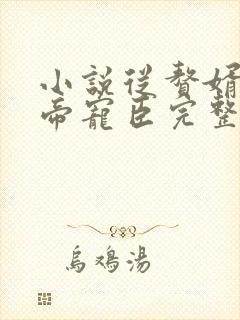 小說從贅婿
帝寵臣完整
烏鴉湯